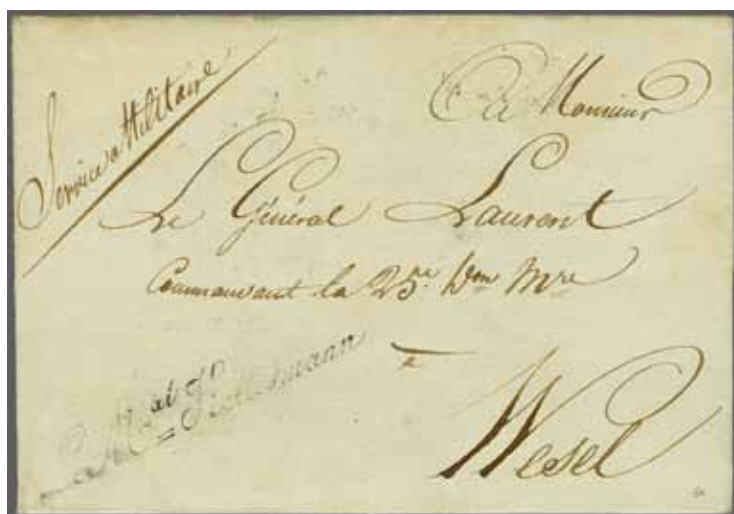 Service Militaire
A Monsieur
Le Général Laurent
Commandant la 25me Don Mre
à
Wesel